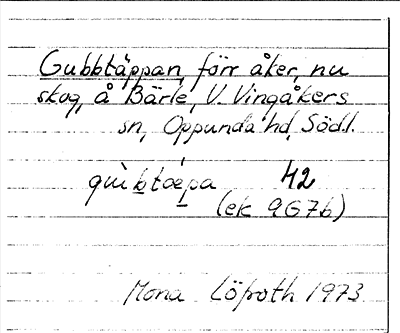 Gubbtäppan, förr åker, nu
skog, å Bärle, V. Vingåkers
sn, Oppunda hd, Södl.
gu̇̀btæ̀pa 42
(ek 9G7b)
Mona Löfroth 1973